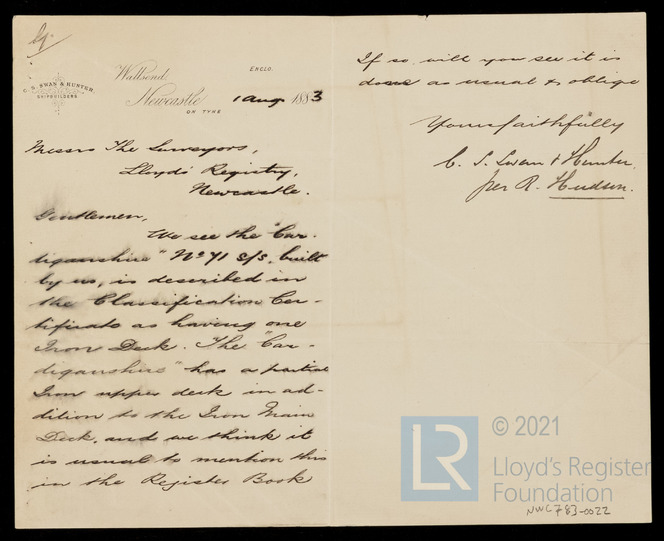 C. S. SWAN & HUNTER.
SHIPBUILDERS.
Wallsend.
ENCLO.
Newcastle
ON TYNE
1 Aug 1883
Messrs The Surveyors,
Lloyds Registry,
Newcastle.
Gentlemen,
We see the "Car-
diganshire" No 71 S/S, built
by us, is described in
the Classification Cer-
tificate as having one
Iron Deck. The "Car-
diganshire" has a partial
Iron upper deck in ad-
dition to the Iron Main
Deck, and we think it
is usual to mention this
in the Register Book
If so, will you see it is
done as usual & oblige
Yours faithfully
C. S. Swan & Hunter.
per R. Hudson.
LR
© 2021
Lloyd's Register
Foundation
NWC783-0022